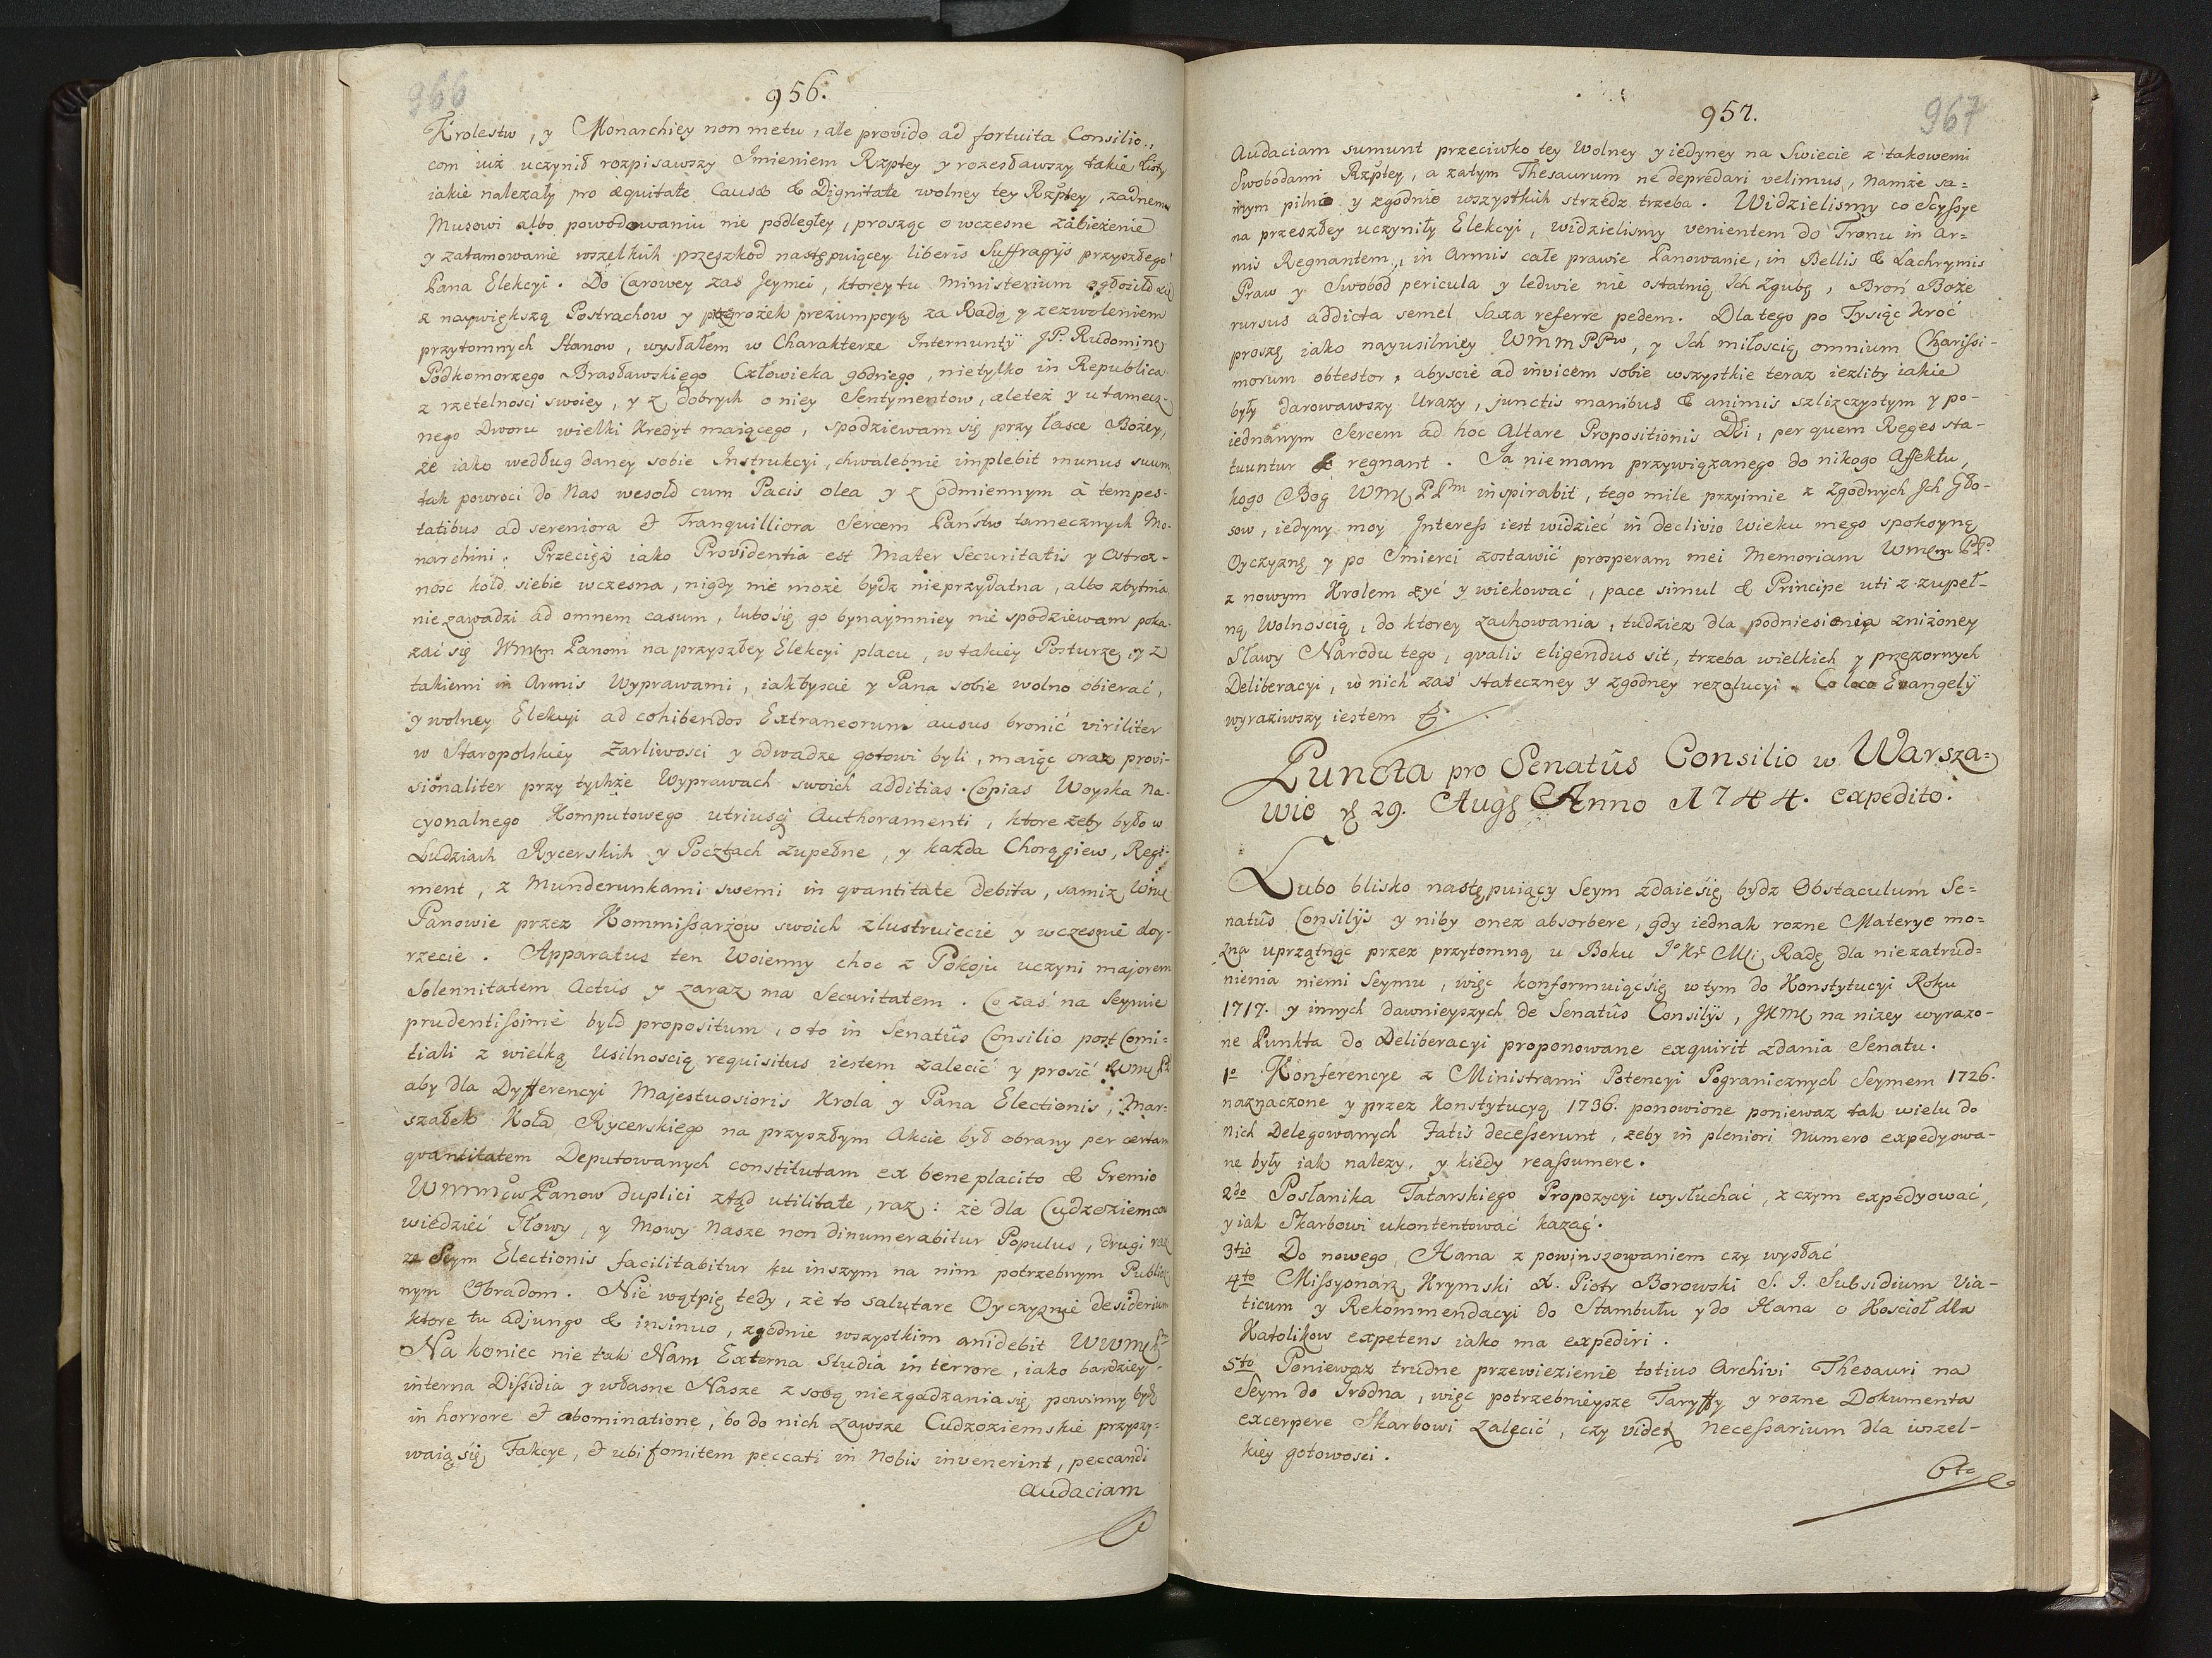 966
956.
Krolestw, y Monarchiey non metu, ale provido ad fortuita Consilio,
com iuż uczynił rozpisawszy Imieniem Rzptey y rozesławszy takie Listy
iakie nalezały pro æquitate Causæ & Dignitate wolney tey Rzptey, żadnemu
Musowi albo powodowaniu nie podległey, prosząc o wczesne zabieżenie
y zatamowanie wszelkich przeszkod następuiącey liberis Suffragÿs przyszłego
Pana Elekcyi. Do Carowey zaś Jeymci, ktorey tu Ministerium
z naywiększą Postrachow y pogrożek prezumpcyą za Radą y zezwoleniem
przytomnych Stanow, wysłałem w Charakterze Internuntÿ JP. Rudominę
Podkomorzego Brasławskiego Człowieka godnego, nietylko in Republica
z rzetelnosci swoiey, y z dobrych o niey Sentymentow, aleteż y u tamecz-
nego Dworu wielki Kredyt maiącego, spodziewam się przy łasce Bożey,
że iako według daney sobie Instrukcyi, chwalebnie implebit munus suum,
tak powroci do Nas wesoło cum Pacis olea y z odmiennym à tempes-
tatibus ad sereniora & Tranquilliora Sercem Państw tamecznych Mo-
narchini. Przecięż iako Providentia est Mater Securitatis y Ostroż-
nosc koło siebie wczesna, nigdy nie może bydz nieprzydatna, albo zbytnia,
nie zawadzi ad omnem casum, lubo się go bynaymniey nie spodziewam poka-
zać się Wmm Panom na przyszłey Elekcyi placu, w takiey Posturze, y z
takiemi in Armis Wyprawami, iakbyscie y Pana sobie wolno obierać,
y wolney Elekcyi ad cohibendos Extraneorum ausus bronić viriliter
w Staropolskiey żarliwosci y odwadze gotowi byli, maiąc oraz provi-
sionaliter przy tychże Wyprawach swoich additias Copias Woyska Na-
cyonalnego Komputowego utriusq Authoramenti, ktore żeby było w
Ludziach Rycerskich y Pocztach zupełne, y każda Chorągiew, Regi-
ment, z Munderunkami swemi in quantitate debita, samiż Wmć
Panowie przez Kommissarzow swoich zlustruiecie y wczesnie doy-
rzecie. Apparatus ten Woienny choc z Pokoju uczyni majorem
Solennitatem Actûs y zaraz ma Securitatem. Co zaś na Seymie
prudentissimè było propositum, o to in Senatûs Consilio post Comi=
tiali z wielką Usilnoscią requisitus iestem zalecić y prosić
aby dla Dyfferencyi Majestuosioris Krola y Pana Electionis, Mar-
szałek Koła Rycerskiego na przyszłym Akcie był obrany per certam
quantitatem Deputowanych constitutam ex beneplacito & Gremio
Wmmciow Panow duplici ztąd utilitate, raz: że dla Cudzoziemcow
wiedzieć Głowy, y Mowy Nasze non dinumerabitur Populus, drugi raz
ze Seym Electionis facilitabitur ku inszym na nim potrzebnym Publicz
nym Obradom. Nie wątpię tedy, że to salutare Oyczyznie desiderium
ktore tu adjungo & insinuo, zgodnie wszystkim
Na koniec nie tak Nam Externa Studia in terrore, iako bardziey
interna Dissidia y własne Nasze z sobą niezgadzania się powinny bydź
in horrore & abominatione, bo do nich zawsze Cudzoziemskie przyszy-
waią się Fakcye, & ubi fomitem peccati in Nobis invenerint, peccandi
audaciam
957.
967
Audaciam sumunt przeciwko tey Wolney y iedyney na Swiecie z takowemi
Swobodami Rzptey, a zatym Thesaurum ne depredari velimus, Namże sa=
mym pilno y zgodnie wszystkich strzedz trzeba. Widzielismy co Scyssye
na przeszłey uczyniły Elekcyi, widzielismy venientem do Tronu in Ar=
mis Regnantem, in Armis całe prawie Panowanie, in Bellis & Lachrymis
Praw y Swobod pericula y ledwie nie ostatnią Ich Zgubę, Broń Boże
rursus addicta semel Saxa referre pedem. Dla tego po Tysiąc kroć
proszę iako nayusilniey WmmPPw, y Ich miłoscią omnium Charissi-
morum obtestor, abyscie ad invicem sobie wszystkie teraz iezliby iakie
były darowawszy Urazy, junctis manibus & animis szlizczystym y po-
iednanym Sercem ad hoc Altare Propositionis Dei, per quem Reges sta-
tuuntur & regnant. Ja nie mam przywiązanego do nikogo Affektu,
kogo Bog Wmć PPm inspirabit, tego mile przyimie z zgodnych Ich Gło-
sow, iedyny moy Interess iest widzieć in declivio wieku mego spokoyną
Oyczyznę y po Smierci zostawić prosperam mei Memoriam Wmćm PP.
z nowym Krolem żyć y wiekować, pace simul & Principe uti z zupeł-
ną Wolnoscią, do ktorey zachowania, tudziez dla podniesienia zniżoney
Sławy Narodu tego, qualis eligendus sit, trzeba wielkich y przezornych
Deliberacyi, w nich zaś stateczney y zgodney rezolucyi. Co loco Evangelÿ
wyraziwszy iestem &.
Puncta pro Senatûs Consilio w Warsza=
wie d 29. Aug Anno 1744. expedito.
Lubo blisko następuiący Seym zdaie się bydz Obstaculum Se=
natûs Consilÿs y niby onez absorbere, gdy iednak rozne Materye mo=
zna uprzątnąc przez przytomną u Boku Jo Kr Mci Radę dla niezatrud=
nienia niemi Seymu, więc konformuiąc się w tym do Konstytucyi Roku
1717. y innych dawnieyszych de Senatûs Consilÿs, JKMć na nizey wyrazo-
ne Punkta do Deliberacyi proponowane exquirit zdania Senatu.
1o Konferencye z Ministrami Potencyi Pogranicznych Seymem 1726.
naznaczone y przez Konstytucyą 1736. ponowione poniewaz tak wielu do
nich Delegowanych Fatis decesserunt, zeby in pleniori Numero expedyowa-
ne były iak nalezy, y kiedy reassumere.
2do Posłanika Tatarskiego Propozycyi wysłuchać, z czym expedyować,
y iak Skarbowi ukontentować kazać.
3tio Do nowego Hana z powinszowaniem czy wysłać
4to Missyonarz Krymski X. Piotr Borowski S. I. Subsidium Via-
ticum y Rekommendacyi do Stambułu y do Hana o Koscioł dla
Katolikow expetens iako ma expediri.
5to Poniewaz trudne przewiezienie totius Archivi Thesauri na
Seym do Grodna, więc potrzebnieysze Taryffy y rozne Dokumenta
excerpere Skarbowi zalecić, czy videt necessarium dla wszel-
kiey gotowosci.
6to